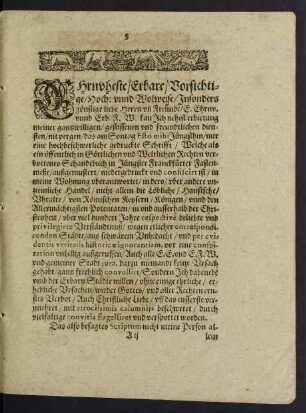 3
EHrnvheste/Erbare/Vorsichti-
ge/Hoch: vnnd Wolweise/Insonders
günstige liebe Herrn vñ Freunde/E. Ehrnv.
vnnd Erb. F. W. kan Ich nehest erbietung
meiner gantzwilligen/geflissenen vnd freundtlichen dien-
sten/nit bergen/das am Sontag Esto mihi Jüngsthin/mir
eine hochbeschwerliche gedruckte Schrifft/Welche als
ein öffentlich in Göttlichen vnd Weltlichen Rechten ver-
bottenes Schandtbuch in Jüngster Franckfürter Fasten-
meß/außgemustert/nidergedruckt vnd confisciert ist/in
meine Wohnung vberantwortet/in dero/vber andere vn-
nemliche Händel/nicht allein die Löbliche/Hansische/
Vhralte/von Römischen Keysern/Königen/vnnd den
Allermächtigsten Potentaten/in vnd ausserhalb der Chri-
stenheit/vber viel hundert Jahre respectivè beliebte vnd
privilegirte Verständtnuß/wegen etlicher correspondi-
renden Städte/aus schwärem Unbedacht/vnd per evi-
dentis veritatis historicæ ignorantiam, vor eine conspi-
ration vnbillig außgeruffen/Auch alle E.E. vnd E.F.W.
vnd gemeiner Stadt jura, darzu niemandt keine Vrsach
gehabt/gantz frechlich convelliret/Sondern Ich dabeneben
vnd der Erbarn Städte willen/ohne einige ehrliche/er-
hebliche Vrsachen/wieder Gottes/vnd aller Rechten ern-
stes Verbot/Auch Christliche Liebe/vff das eusserste ver-
unehret/mit atrocissimis calumniis beschweret/durch
vielfaltige convitia flagelliret vnd verspottet worden.
Das also besagtes Scriptum nicht meine Person al-
A ij
lein